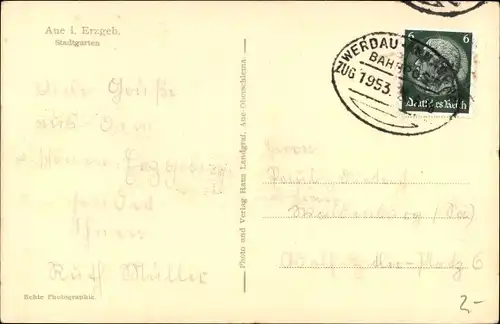 Aue i. Erzgeb.
Stadtgarten
WERDAU
BAHNPOST
ZUG 1953
6 6
Deutsches Reich
Viele Grüße
aus dem
Erzgebirge
sendet
Ihnen
Ruth Müller
Photo und Verlag Hans Landgraf, Aue-Oberschlema.
Herrn
Paul
Adolf-Hitler-Platz 6
Echte Photographie
2.-